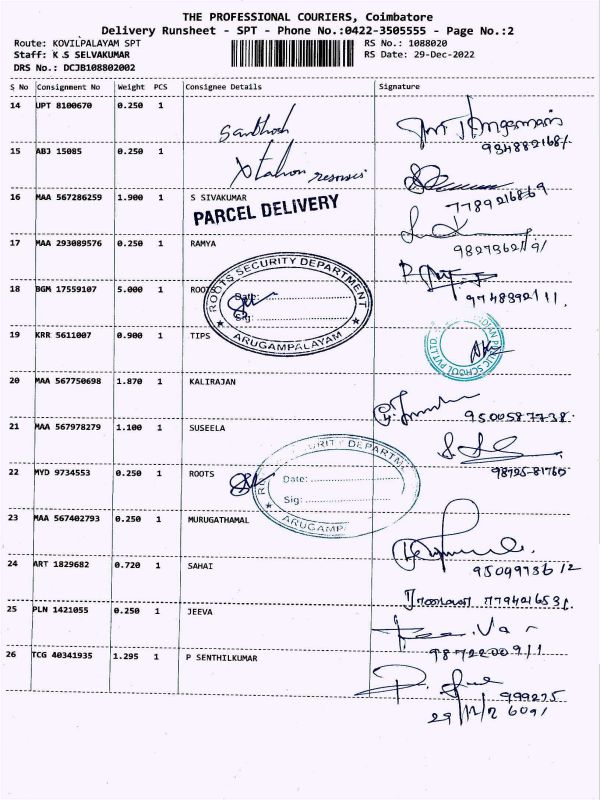 THE PROFESSIONAL COURIERS, Coimbatore
Delivery Runsheet - SPT - Phone No.:0422-3505555 - Page No.:2
Route: KOVILPALAYAM SPT RS No.: 1088020
Staff: K S SELVAKUMAR RS Date: 29-Dec-2022
DRS No.: DCJB108802002
S No Consignment No Weight PCS Consignee Details Signature
14 UPT 8100670 0.250 1 Santhosh
15 ABJ 15085 0.250 1
16 MAA 567286259 1.900 1 S SIVAKUMAR 7789216869
PARCEL DELIVERY
17 MAA 293089576 0.250 1 RAMYA
18 BGM 17559107 5.000 1 ROOTS
ROOTS SECURITY DEPARTMENT
Date:
Sig:
ARUGAMPALAYAM
19 KRR 5611007 0.900 1 TIPS
PUBLIC SCHOOL PVT.LTD.
20 MAA 567750698 1.870 1 KALIRAJAN
9500587738
21 MAA 567978279 1.100 1 SUSEELA
98425-81760
22 MYD 9734553 0.250 1 ROOTS
Date:
Sig:
23 MAA 567402793 0.250 1 MURUGATHAMAL
24 ART 1829682 0.720 1 SAHAI
9509973612
25 PLN 1421055 0.250 1 JEEVA
9872200911
26 TCG 40341935 1.295 1 P SENTHILKUMAR